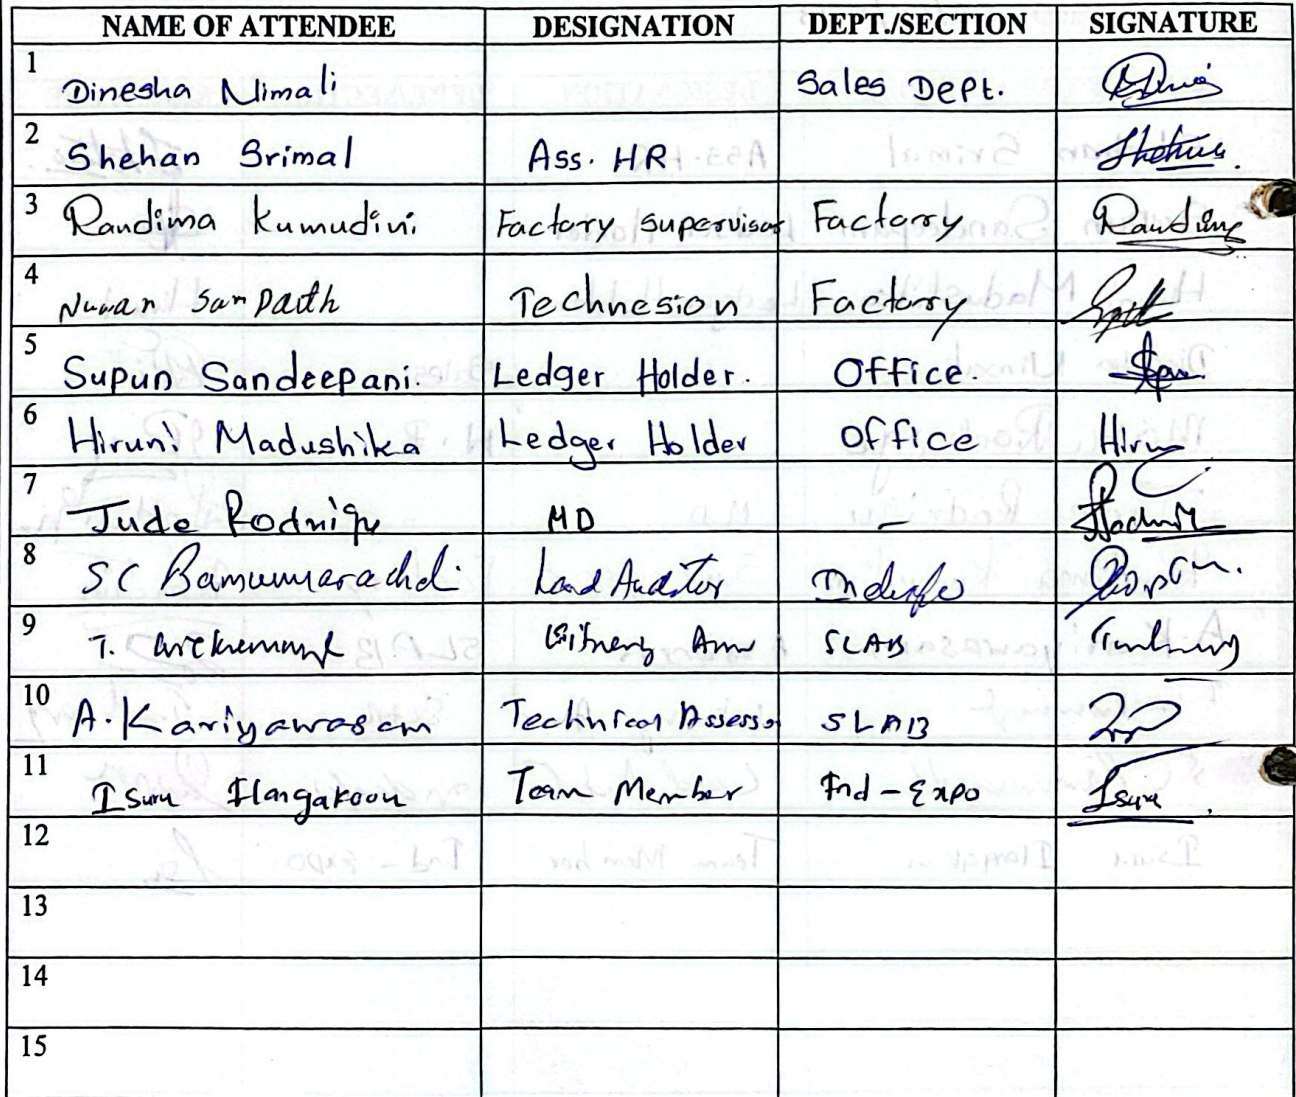 NAME OF ATTENDEE DESIGNATION DEPT./SECTION SIGNATURE
1 Dinesha Nimali Sales Dept.
2 Shehan Srimal Ass. HR
3 Randima Kumudini Factory supervisor Factory
4 Nuwan Sampath Technesion Factory
5 Supun Sandeepani. Ledger Holder. Office.
6 Hiruni Madushika Ledger Holder Office Hiru
7 Jude MD -
8 SC Lead Auditor
9 T. SLAB
10 A. Kariyawasam Technical Assessor SLAB
11 Isuru Ilangakoon Team Member Ind-Expo Isuru
12
13
14
15